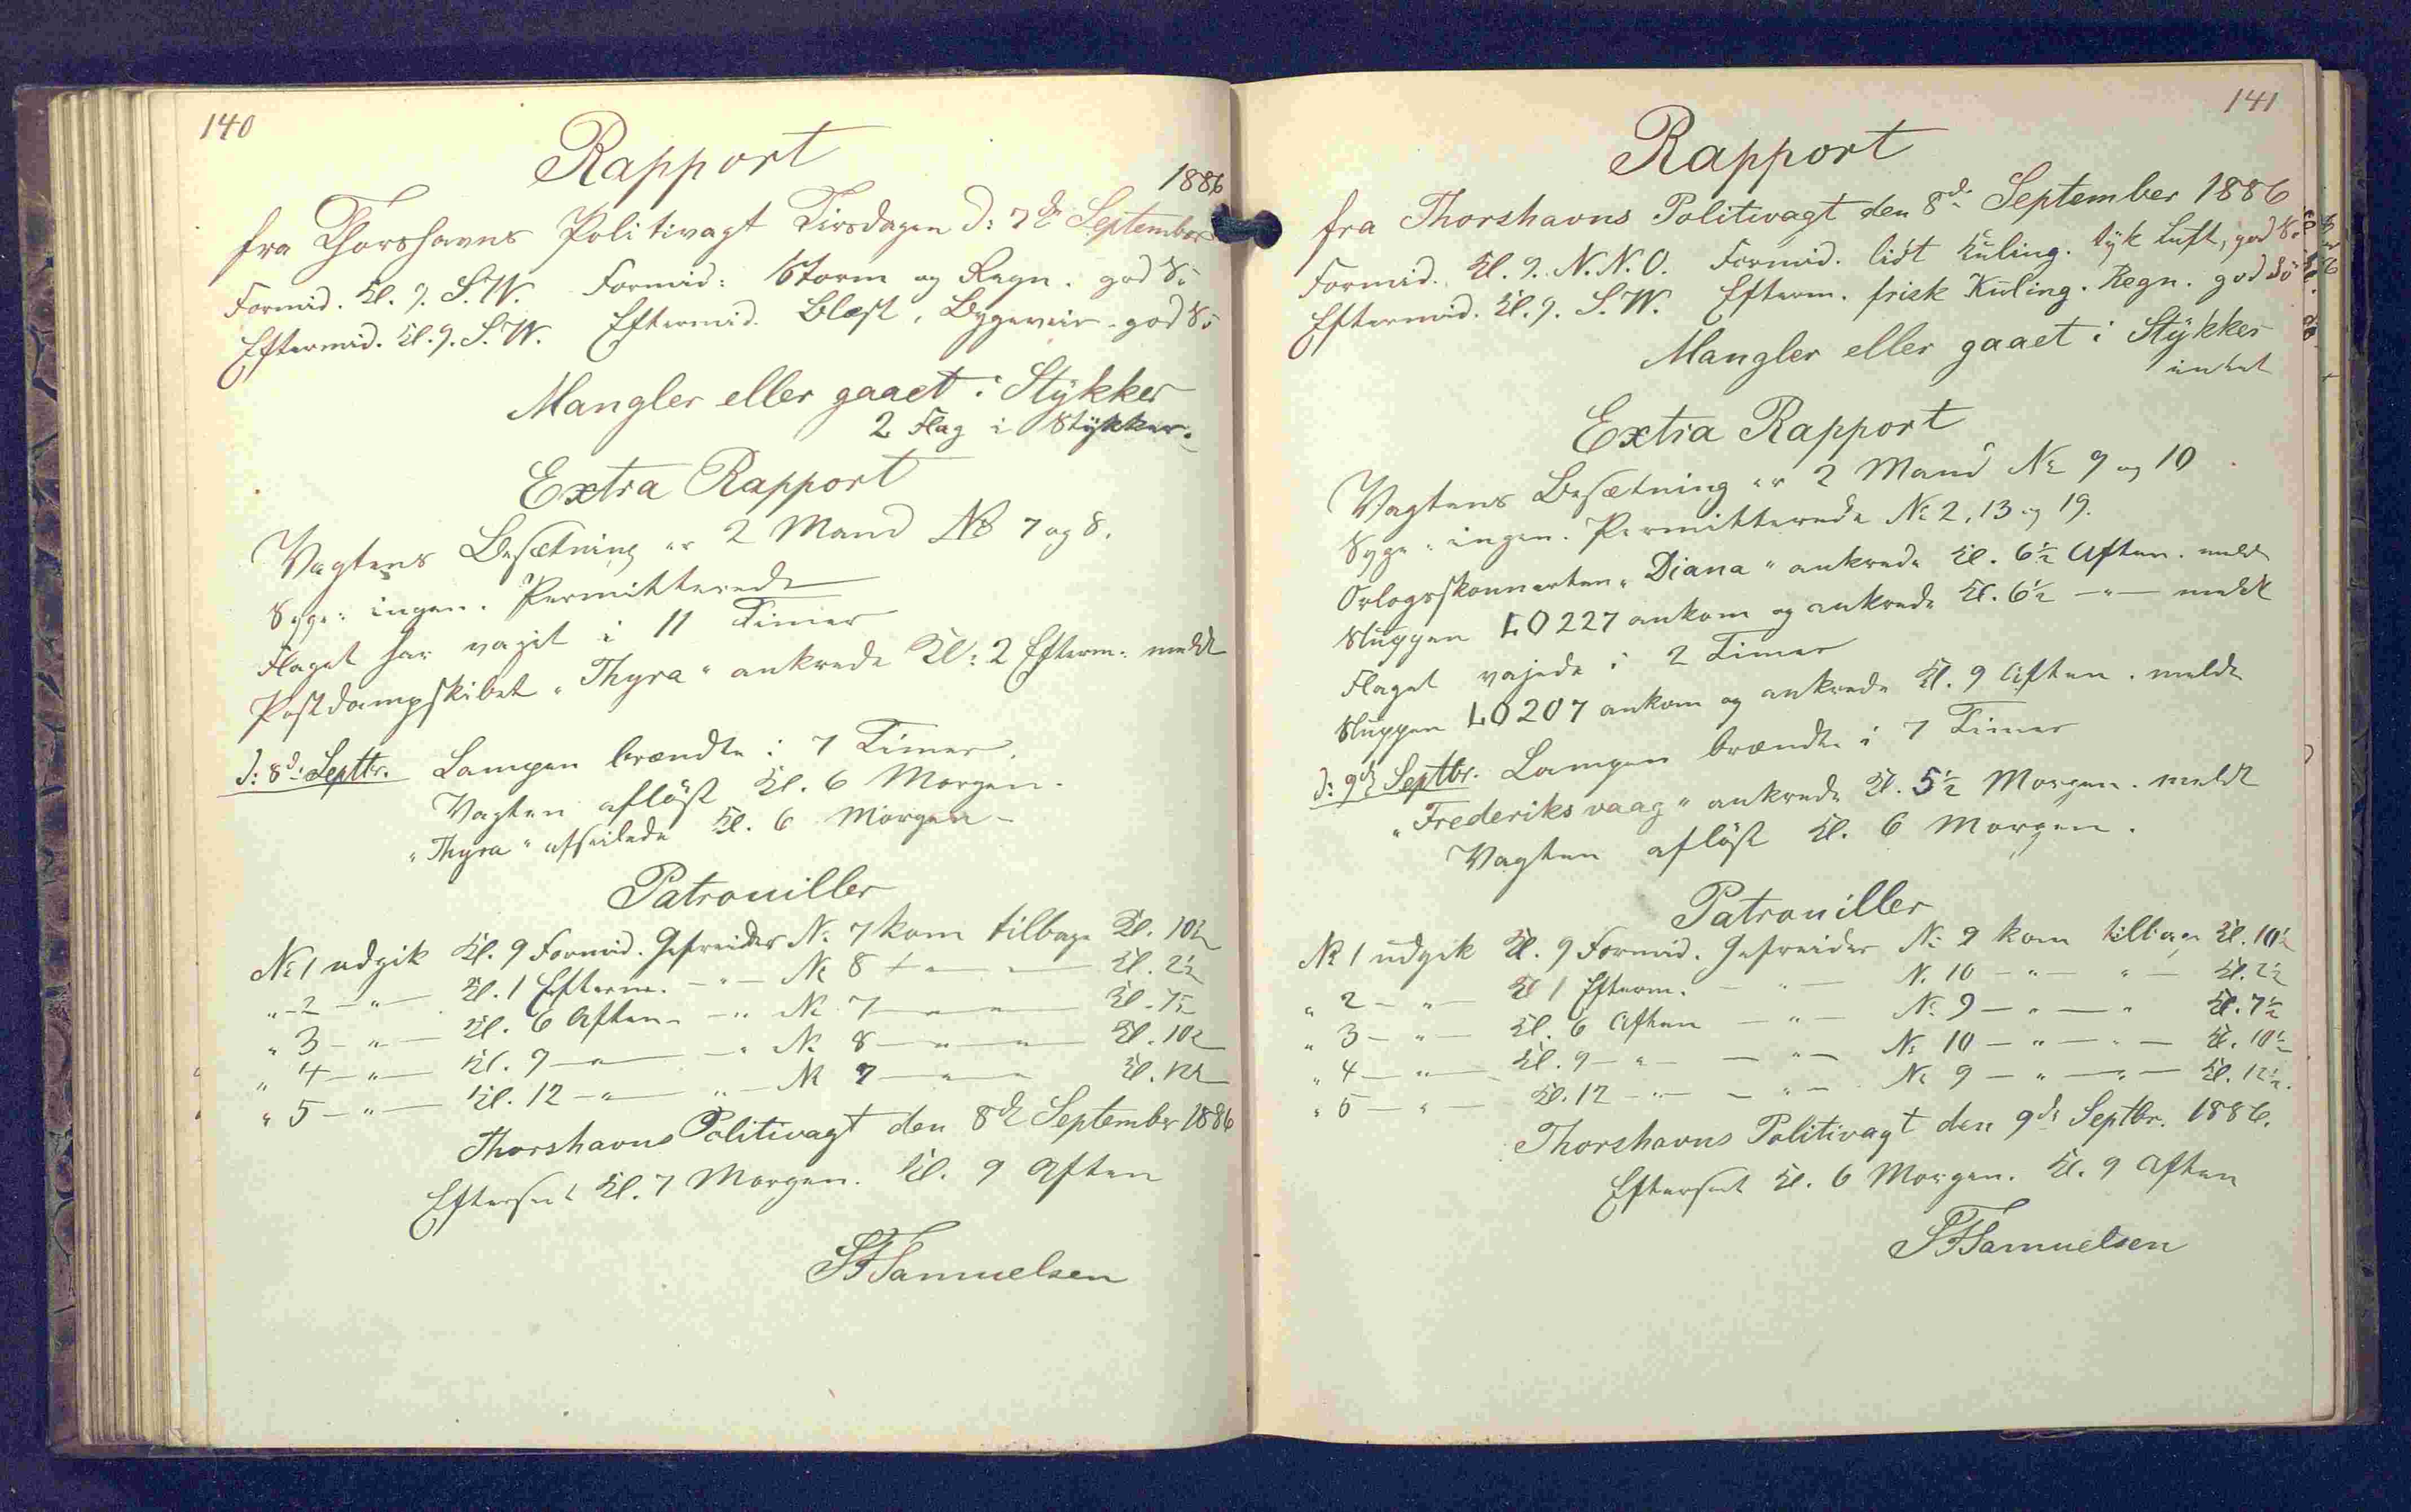 140
Rapport
1886
fra Thorshavns Politivagt Tirsdagen d: 7de September
Formid. Kl. 9. S.W. Formid: Storm og Regn. god Sö
Eftermid. Kl. 9. S.W. Eftermid. Blæst, Bygeveir. god Sö
Mangler eller gaaet i Stÿkker
2 Flag i Stÿkker.
Extra Rapport
Vagtens Besætning er 2 Mand No 7 og 8.
Syge: ingen. Permitterede —
Flaget har vajet i 11 Timer
Postdampskibet "Thyra" ankrede Kl: 2 Efterm. meldt
d: 8d: Septbr. Lampen brændte i 7 Timer.
Vagten aflöst Kl. 6 Morgen.
"Thyra" afseilede Kl. 6 Morgen
Patrouiller
No 1 udgik Kl. 9 Formid. Gefreider No 7 kom tilbage Kl. 10½
" 2 — " — Kl. 1 Efterm. — " — No 8 — " — " — Kl. 2½
" 3 — " — Kl. 6 Aften — " — No 7 — " — " — Kl. 7½
" 4 — " — Kl. 9 — " — — " — No 8 — " — " — Kl. 10½
" 5 — " — Kl. 12 — " — — " — No 7 — " — " — Kl. 12½
Thorshavns Politivagt den 8de September 1886
Efterset Kl. 7 Morgen. Kl. 9 Aften
SFSamuelsen
141
Rapport
fra Thorshavns Politivagt den 8d. September 1886
Formid. Kl. 9. N.N.O. Formid. lidt Kuling. tÿk Luft, god Sö
Eftermid. Kl. 9. S.W. Efterm. frisk Kuling. Regn. god Sö
Mangler eller gaaet i Stÿkker
intet
Extra Rapport
Vagtens Besætning er 2 Mand No 9 og 10
Syge: ingen. Permitterede No 2, 13 og 19.
Orlogsskonnerten "Diana" ankrede Kl. 6½ Aften. meldt
Sluppen LO 227 ankom og ankrede Kl. 6½ — " — meldt
Flaget vajede i 2 Timer
Sluppen LO 207 ankom og ankrede Kl. 9 Aften. meldt
d: 9de Septbr. Lampen brændte i 7 Timer
"Frederiksvaag" ankrede Kl. 5½ Morgen. meldt
Vagten aflöst Kl. 6 Morgen.
Patrouiller
No 1 udgik Kl. 9 Formid. Gefreider No 9 kom tilbage Kl. 10½
" 2 — " — Kl 1 Efterm. — " — No 10 — " — " — Kl. 2½
" 3 — " — Kl. 6 Aften — " — No 9 — " — " Kl. 7½
" 4 — " — Kl. 9 — " — — " — No 10 — " — " — Kl. 10½
" 5 — " — Kl. 12 — " — — " — No 9 — " — " — Kl. 12½.
Thorshavns Politivagt den 9de Septbr. 1886.
Efterset Kl. 6 Morgen. Kl. 9 Aften
SFSamuelsen